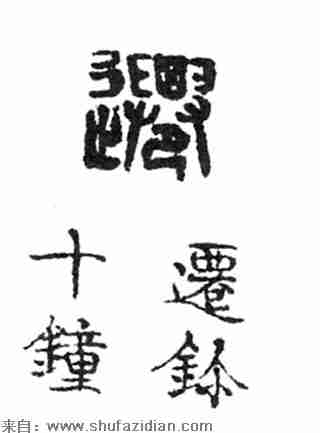 遷鉩
十鐘
来自：www.shufazidian.com